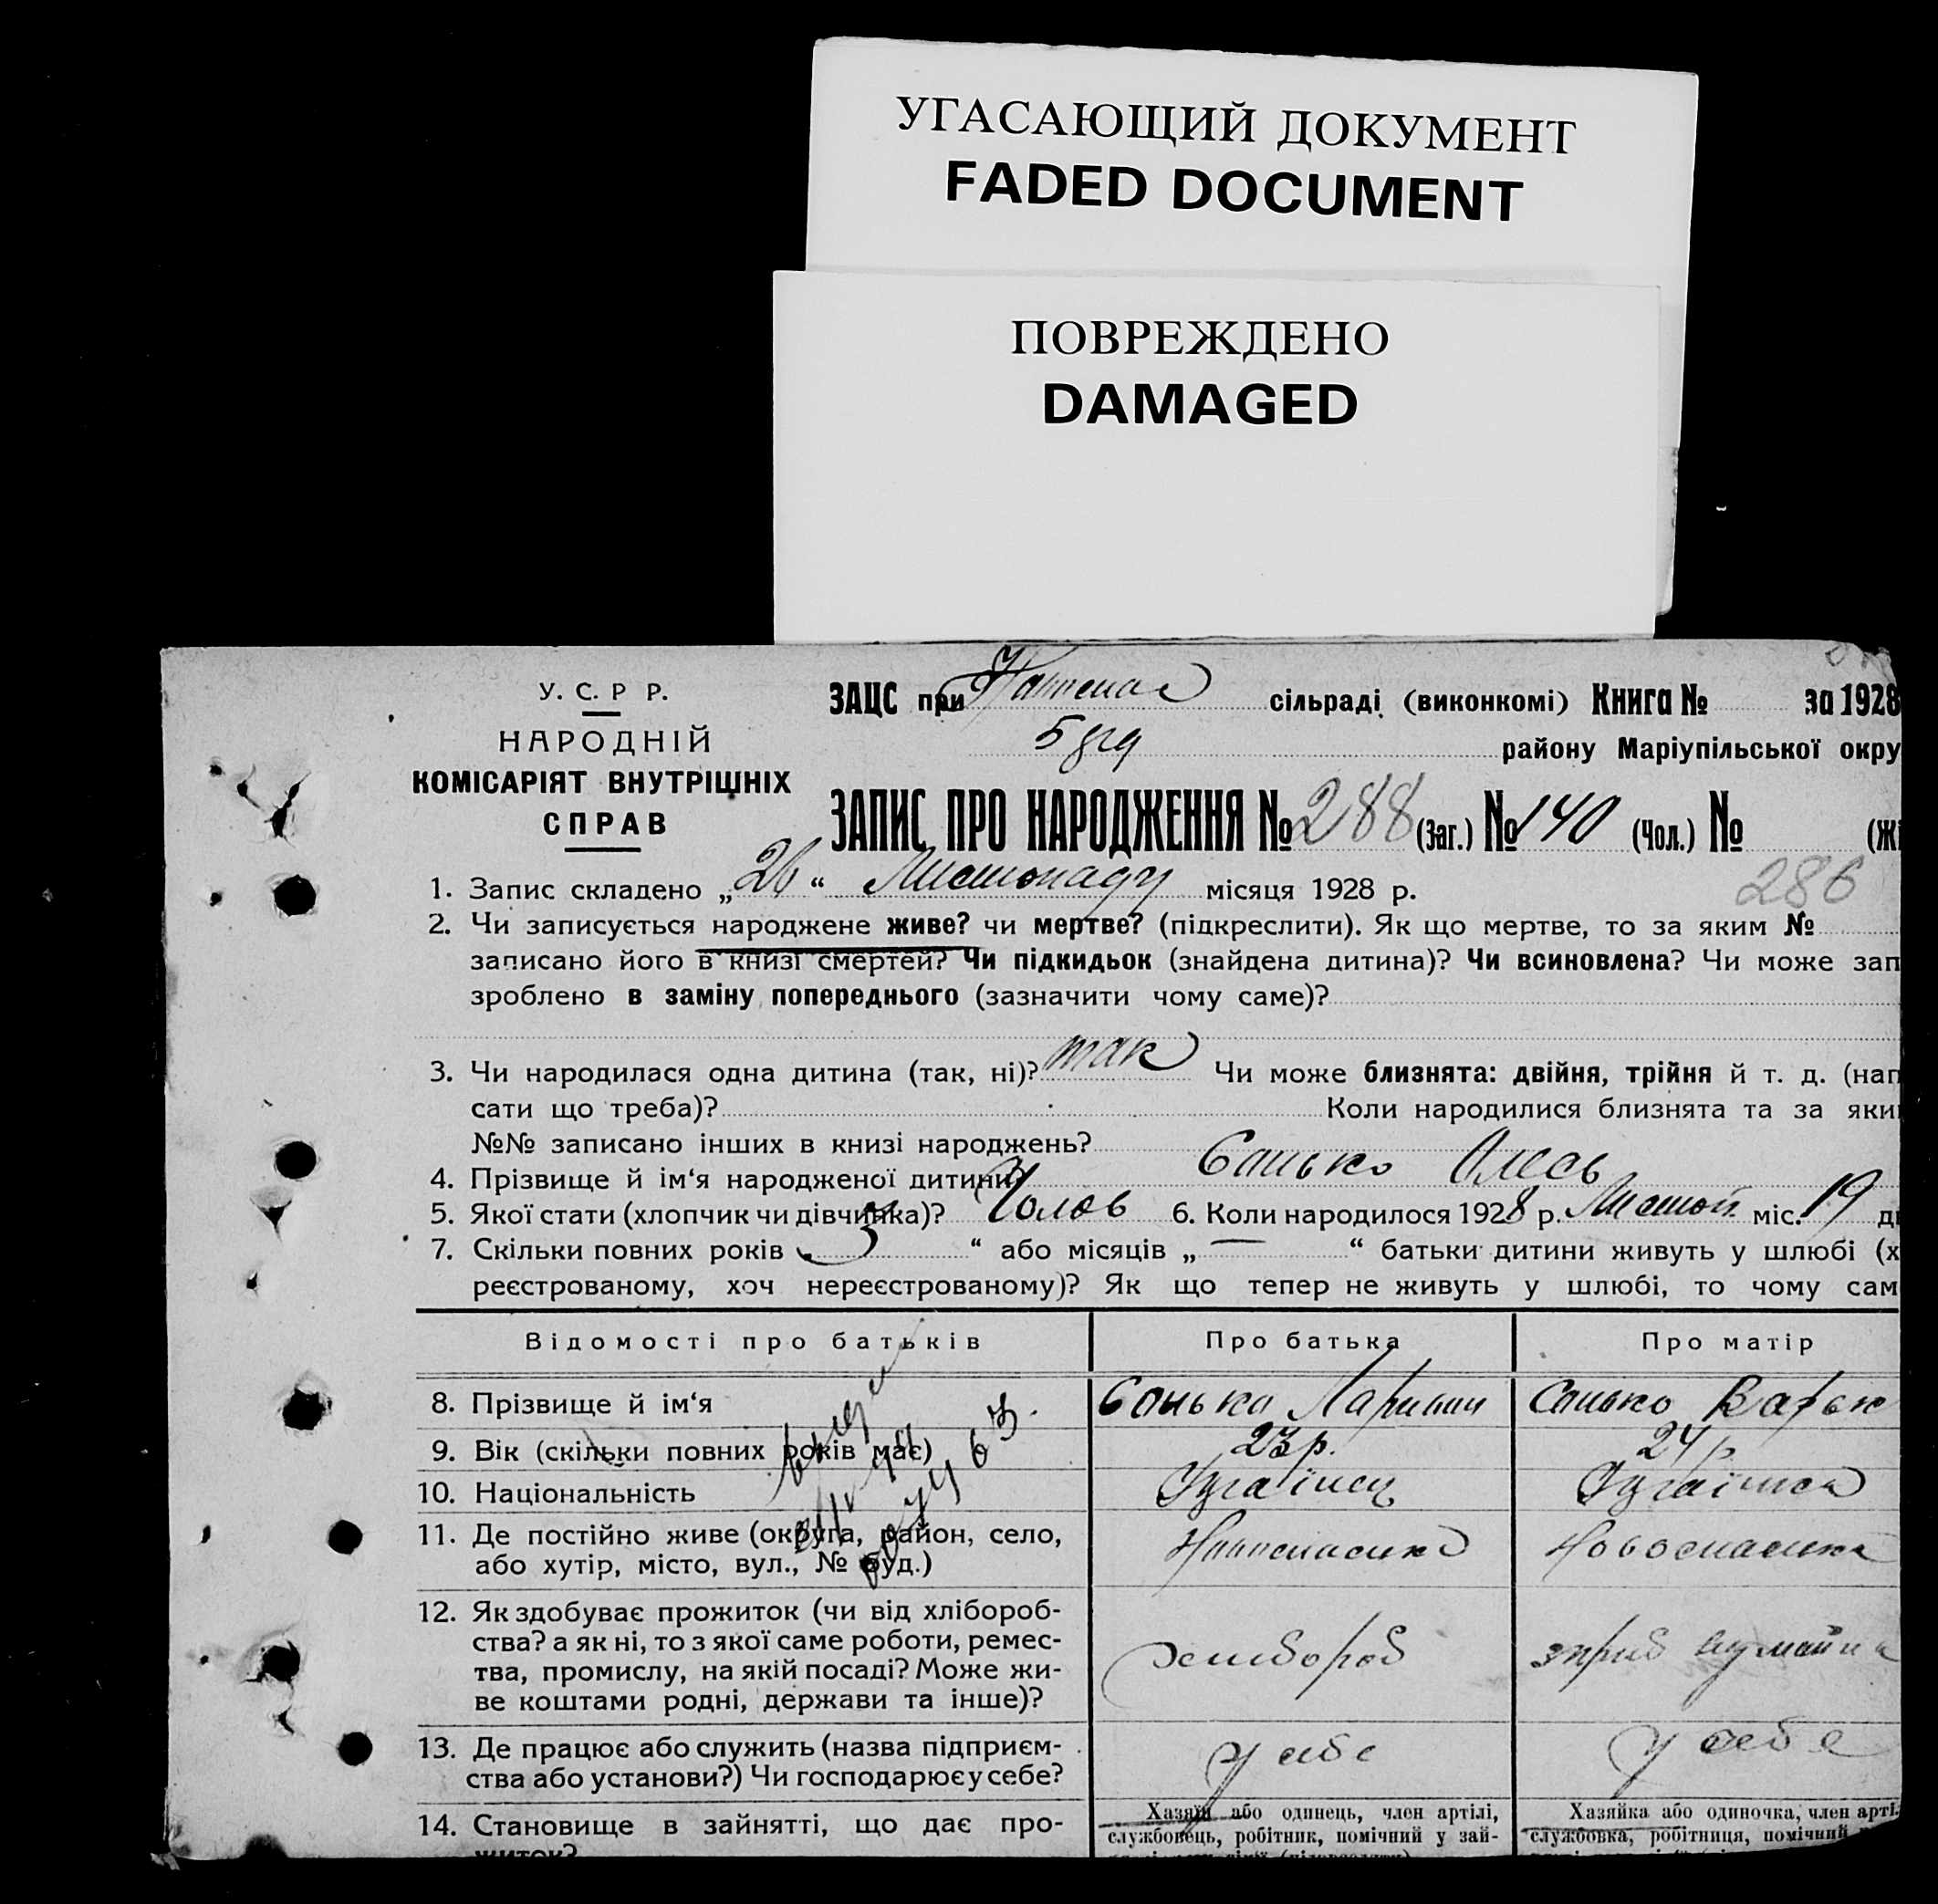 УГАСАЮЩИЙ ДОКУМЕНТ
FADED DOCUMENT
ПОВРЕЖДЕНО
DAMAGED
У. С. Р Р.
НАРОДНІЙ
КОМІСАРІЯТ ВНУТРІШНІХ
СПРАВ
ЗАЦС при сільраді (виконкомі) Книга № за 1928
району Маріупільської окру
ЗАПИС ПРО НАРОДЖЕННЯ № 288 (Заг.) № 140 (Чол.) № (Жі
286
1. Запис складено „26“ Листопаду місяця 1928 р.
2. Чи записується народжене живе? чи мертве? (підкреслити). Як що мертве, то за яким №
записано його в книзі смертей? Чи підкидьок (знайдена дитина)? Чи всиновлена? Чи може зап
зроблено в заміну попереднього (зазначити чому саме)?
3. Чи народилася одна дитина (так, ні)? так Чи може близнята: двійня, трійня й т. д. (нап
сати що треба)? Коли народилися близнята та за яки
№№ записано інших в книзі народжень?
4. Прізвище й ім‘я народженої дитини? Санько Олесь
5. Якої стати (хлопчик чи дівчинка)? Чолов 6. Коли народилося 1928 р. Листоп. міс. 19 д
7. Скільки повних років „ 3 “ або місяців „ — “ батьки дитини живуть у шлюбі (х
реєстрованому, хоч нереєстрованому)? Як що тепер не живуть у шлюбі, то чому сам
Відомості про батьків Про батька Про матір
8. Прізвище й ім‘я Санько Санько
9. Вік (скільки повних років має) 23 р. 24 р
10. Національність Українец Українка
11. Де постійно живе (округа, район, село,
або хутір, місто, вул., № буд.) Новоспасівка Новоспасівка
12. Як здобуває прожиток (чи від хлібороб-
ства? а як ні, то з якої саме роботи, ремес-
тва, промислу, на якій посаді? Може жи-
ве коштами родні, держави та інше)? хлибороб
13. Де працює або служить (назва підприєм-
ства або установи?) Чи господарює у себе? у себе у себе
14. Становище в зайнятті, що дає про-
житок?
Хазяїн або одинець, член артілі,
службовець, робітник, помічний у зай-
Хазяйка або одиночка, член арті-
службовка, робітниця, помічний